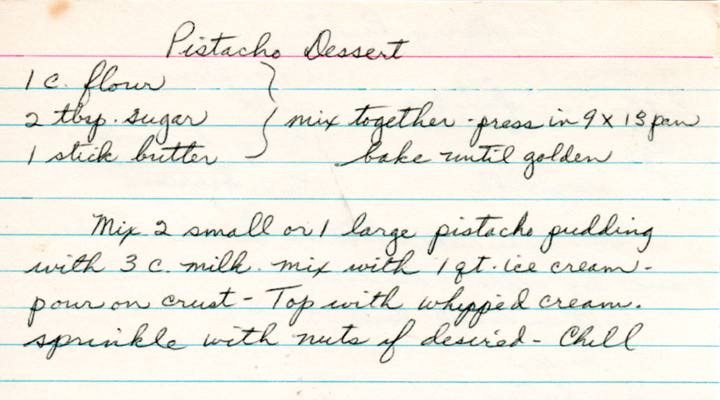 Pistacho Dessert
1 c. flour
2 tbsp. sugar } mix together - press in 9 x 13 pan
1 stick butter bake until golden
Mix 2 small or 1 large pistacho pudding
with 3 c. milk. mix with 1 qt. ice cream -
pour on crust - Top with whipped cream.
sprinkle with nuts if desired - Chill